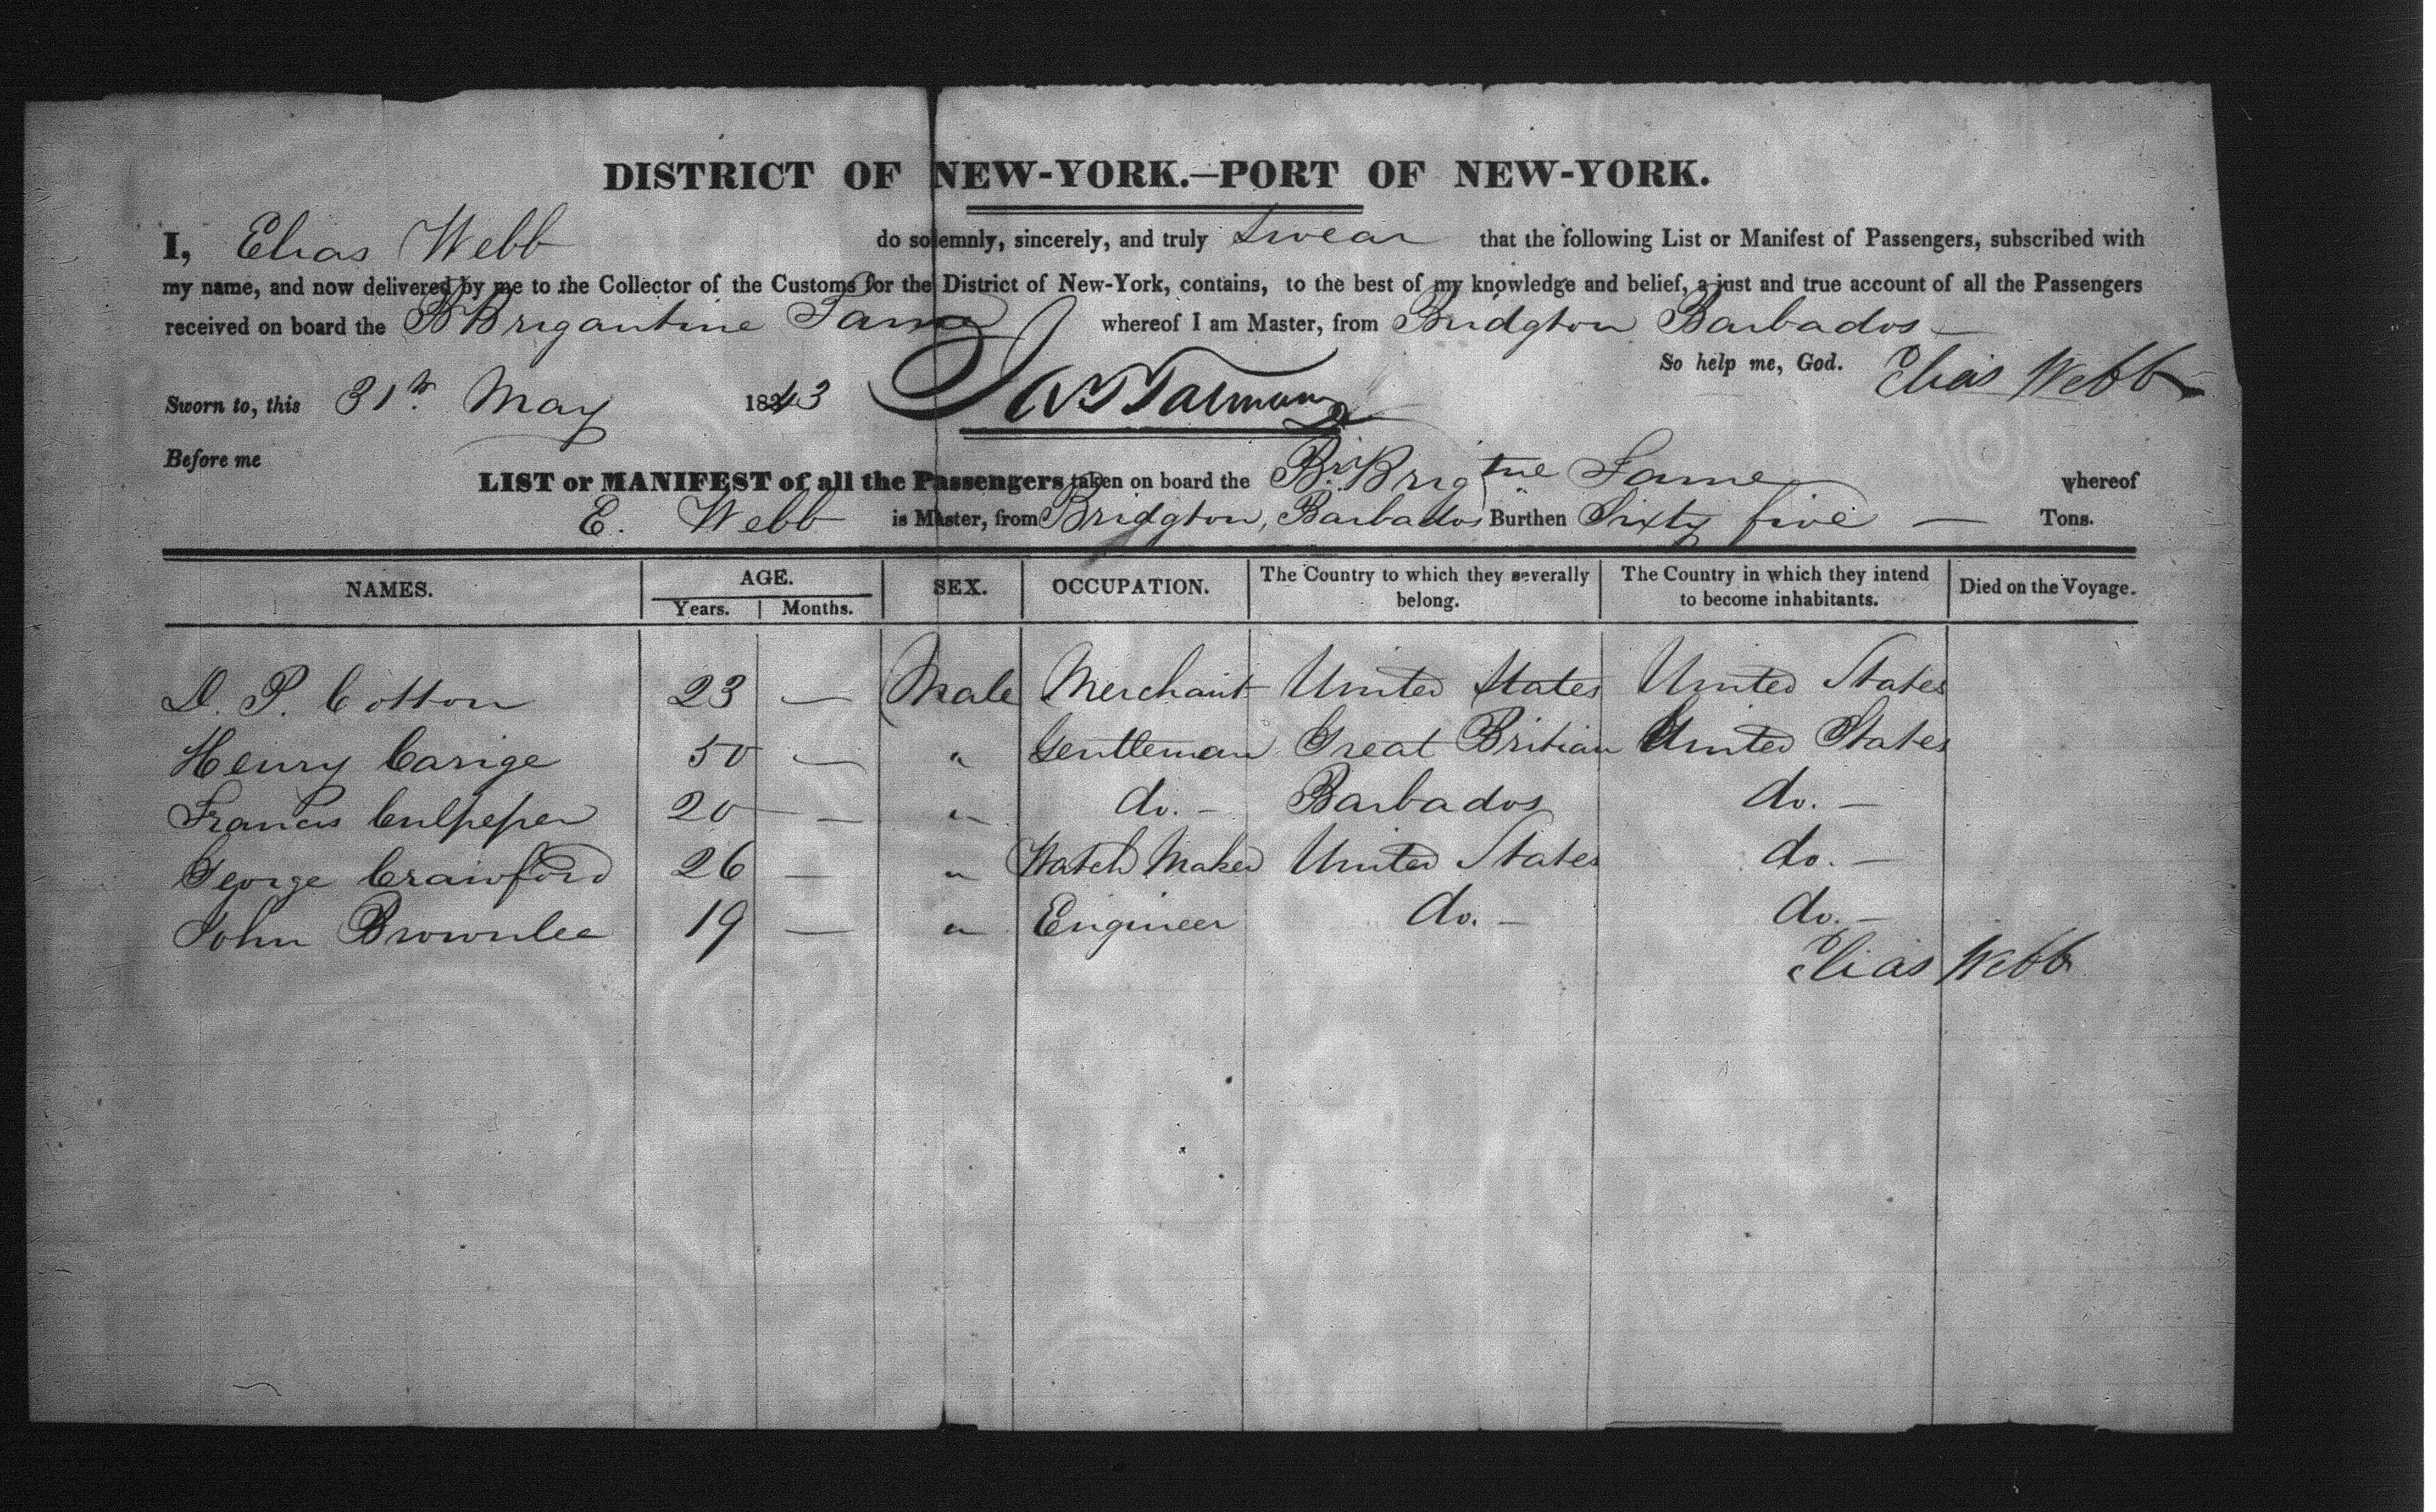 DISTRICT OF NEW-YORK.—PORT OF NEW-YORK.
I, Elias Webb do solemnly, sincerely, and truly Swear that the following List or Manifest of Passengers, subscribed with
my name, and now delivered by me to the Collector of the Customs for the District of New-York, contains, to the best of my knowledge and belief, a just and true account of all the Passengers
received on board the Br Brigantine Fame whereof I am Master, from Bridgton Barbados
So help me, God. Elias Webb
Sworn to, this 31st May 1843
Before me
LIST or MANIFEST of all the Passengers taken on board the Br. Brigtne Fame whereof
E. Webb is Master, from Bridgton, Barbados Burthen Sixty five — Tons.
NAMES. AGE. Years. Months. SEX. OCCUPATION. The Country to which they severally belong. The Country in which they intend to become inhabitants. Died on the Voyage.
D. P. Cotton 23 — Male Merchant United States United States
Henry Carige 50 — " Gentleman Great Britian United States
Francis Culpeper 20 — " do. — Barbados do. —
George Crawford 26 — " Watch Maker United States do. —
John Brownlee 19 — " Engineer do. — do. —
Elias Webb